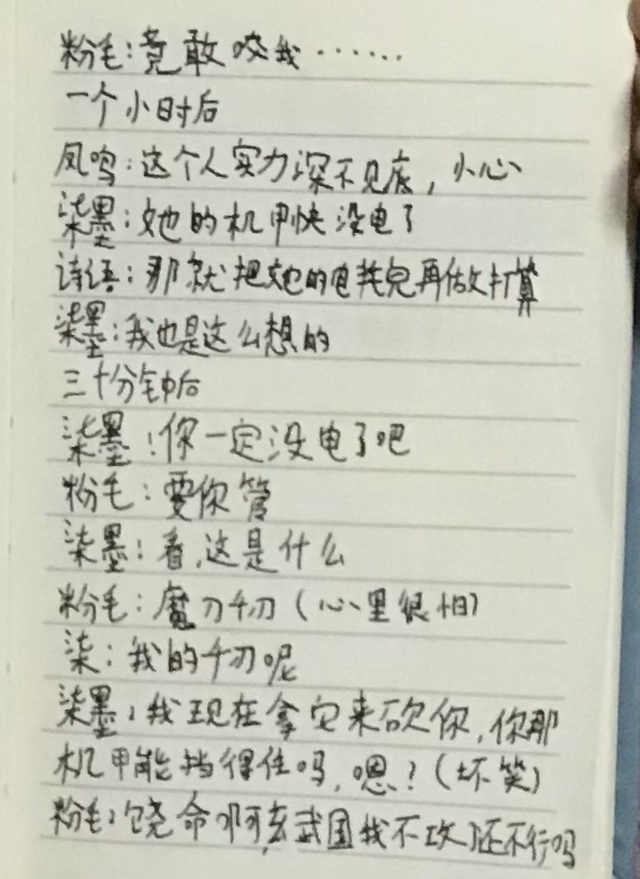 粉毛:竟敢咬我……
一个小时后
凤鸣:这个人实力深不见底,小心
柒墨:她的机甲快没电了
诗语:那就把她的电耗完再做打算
柒墨:我也是这么想的
三十分钟后
柒墨:你一定没电了吧
粉毛:要你管
柒墨:看,这是什么
粉毛:魔刀千刃(心里很怕)
柒:我的千刃呢
柒墨:我现在拿它来砍你,你那
机甲能挡得住吗,嗯?(坏笑)
粉毛:饶命啊,玄武国我不攻了还不行吗